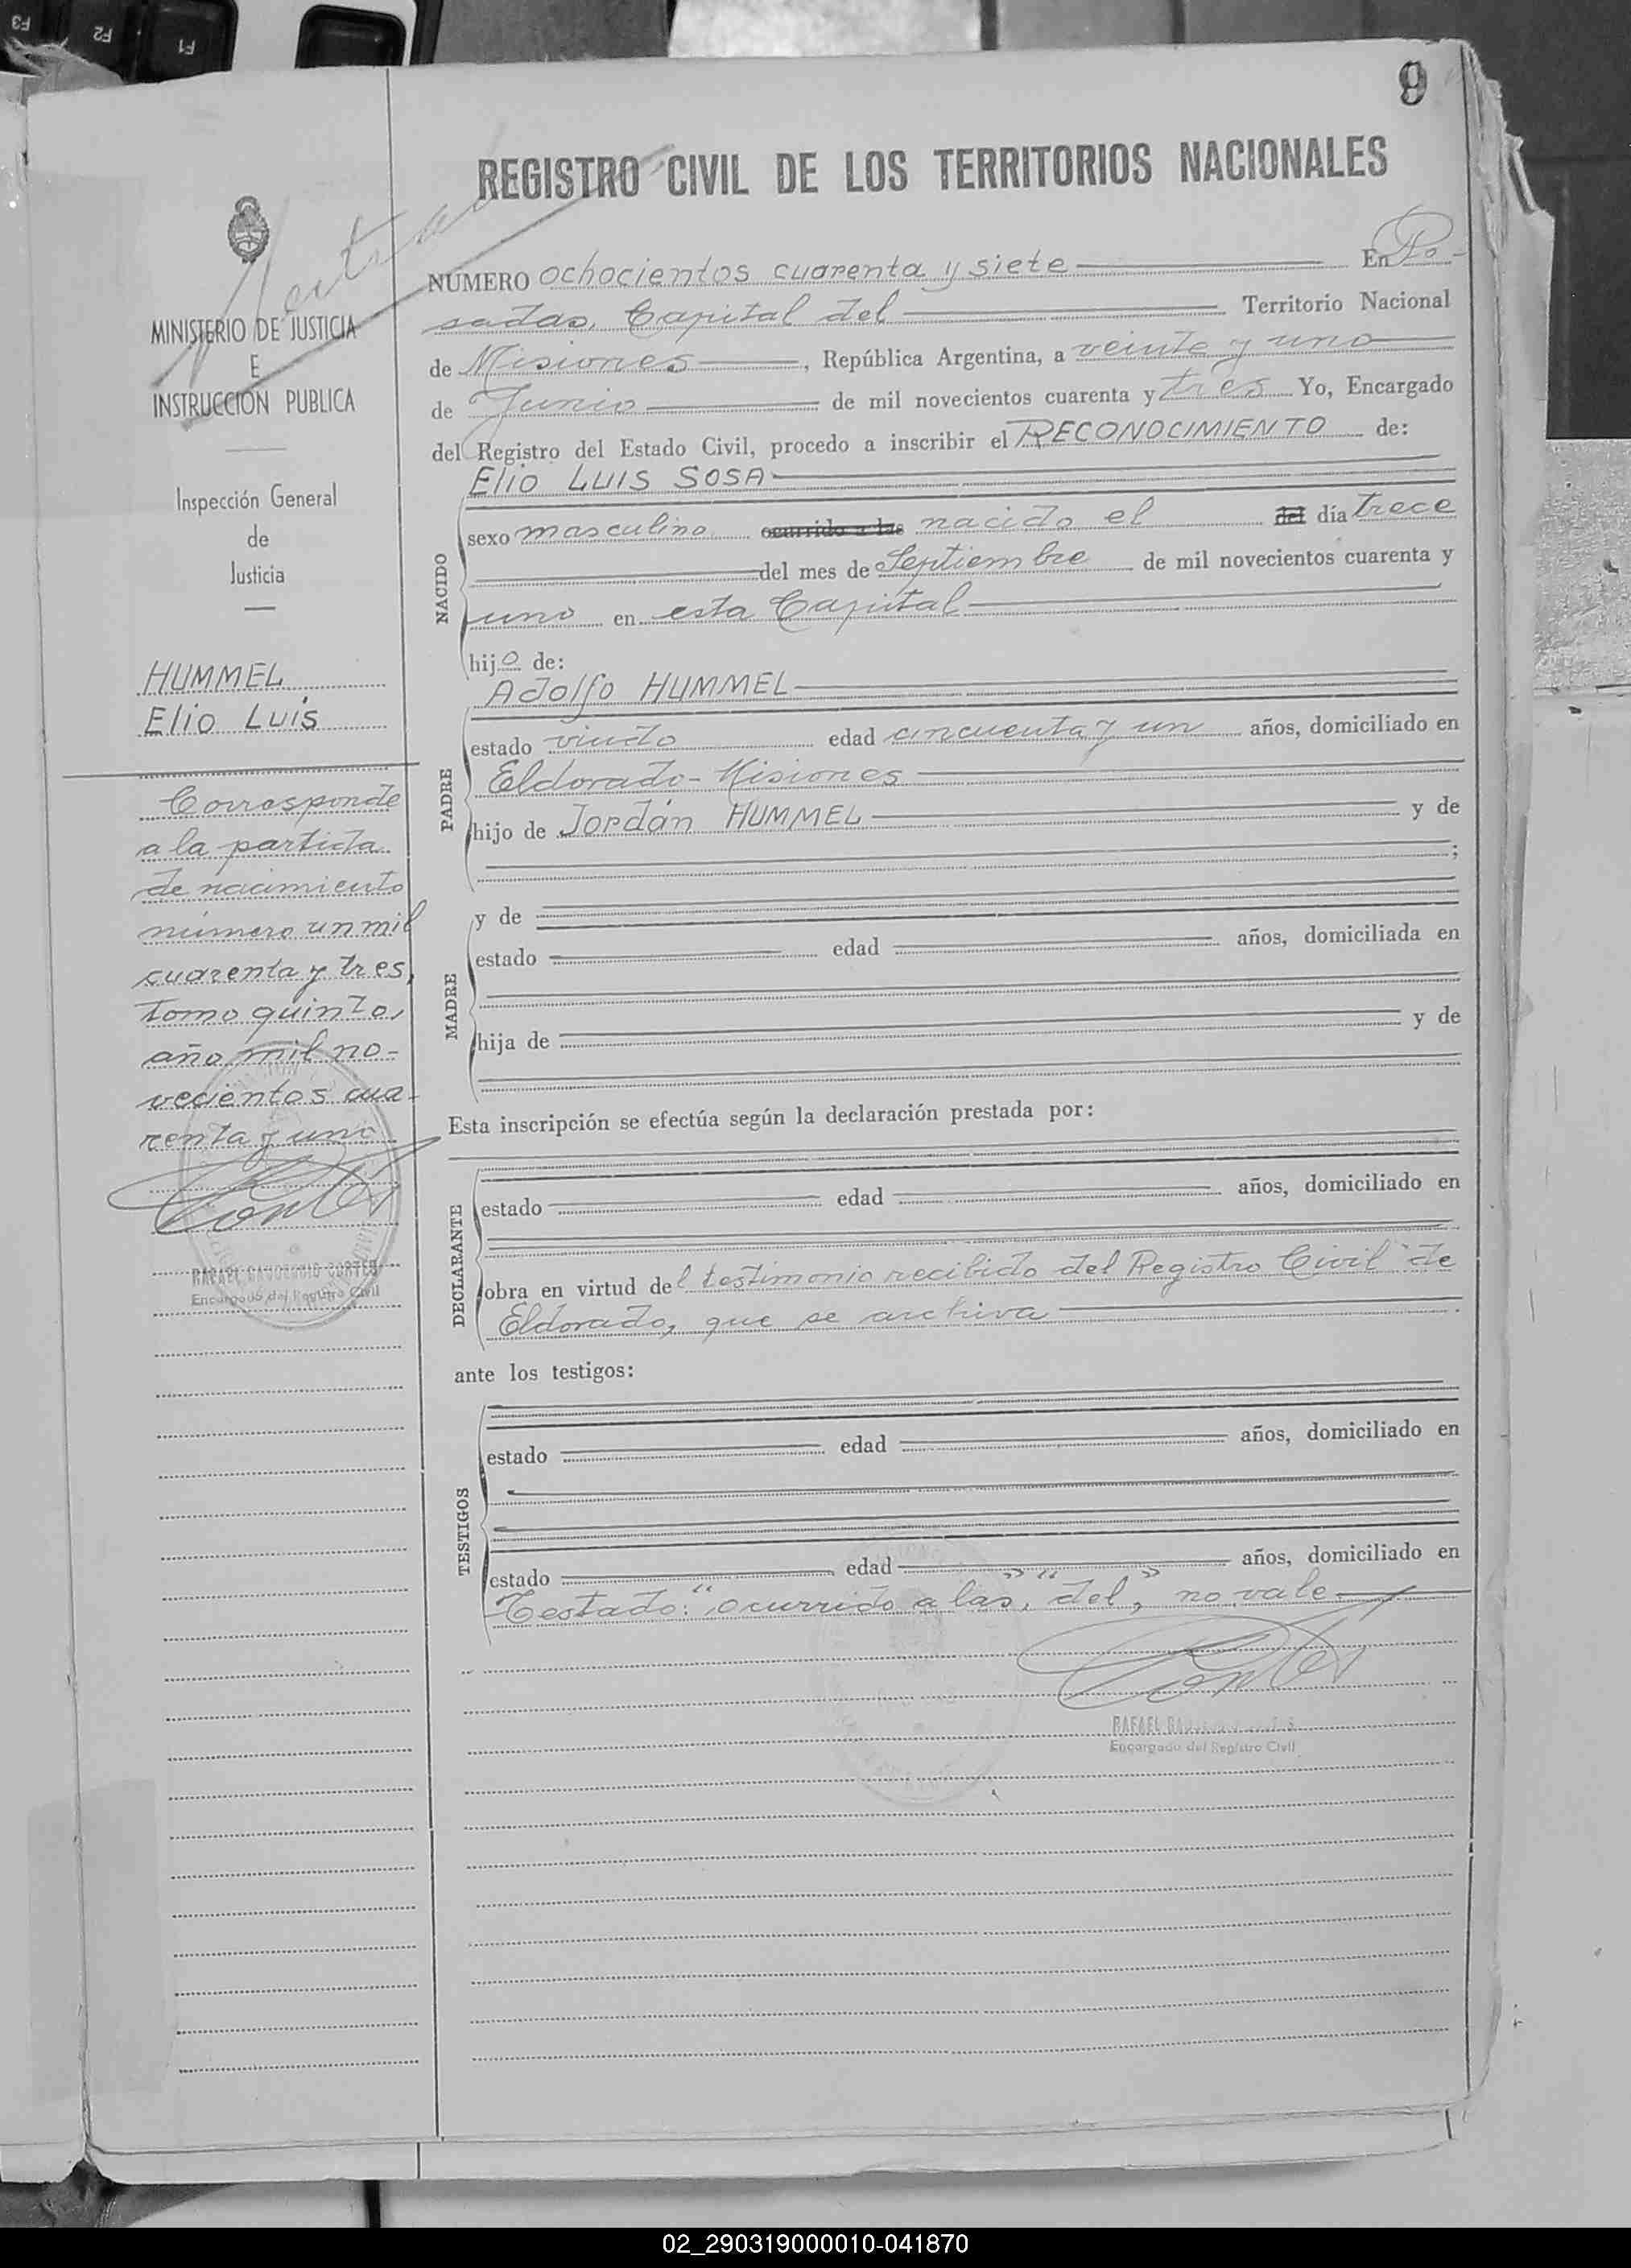 F3 F2 F1
9
REGISTRO CIVIL DE LOS TERRITORIOS NACIONALES
MINISTERIO DE JUSTICIA
E
INSTRUCCION PUBLICA
Inspección General
de
Justicia
HUMMEL
Elio Luis
Corresponde
a la partida
de nacimiento
número un mil
cuarenta y tres,
tomo quinto,
año mil no-
vecientos cua-
renta y uno
Cortés
RAFAEL GAUDENCIO CORTES
Encargado del Registro Civil
NÚMERO ochocientos cuarenta y siete En Po-
sadas, Capital del Territorio Nacional
de Misiones, República Argentina, a veinte y uno
de Junio de mil novecientos cuarenta y tres Yo, Encargado
del Registro del Estado Civil, procedo a inscribir el RECONOCIMIENTO de:
NACIDO
Elio LUIS SOSA
sexo masculino ocurrido a las nacido el del día trece
del mes de Septiembre de mil novecientos cuarenta y
uno en esta Capital
hijo de:
PADRE
Adolfo HUMMEL
estado viudo edad cincuenta y un años, domiciliado en
Eldorado - Misiones
hijo de Jordán HUMMEL y de
;
MADRE
y de
estado edad años, domiciliada en
hija de y de
Esta inscripción se efectúa según la declaración prestada por:
DECLARANTE
estado edad años, domiciliado en
obra en virtud del testimonio recibido del Registro Civil de
Eldorado, que se archiva
ante los testigos:
TESTIGOS
estado edad años, domiciliado en
estado edad años, domiciliado en
Testado: "ocurrido a las", "del", no vale
Cortés
RAFAEL GAUDENCIO CORTES
Encargado del Registro Civil
02_290319000010-041870